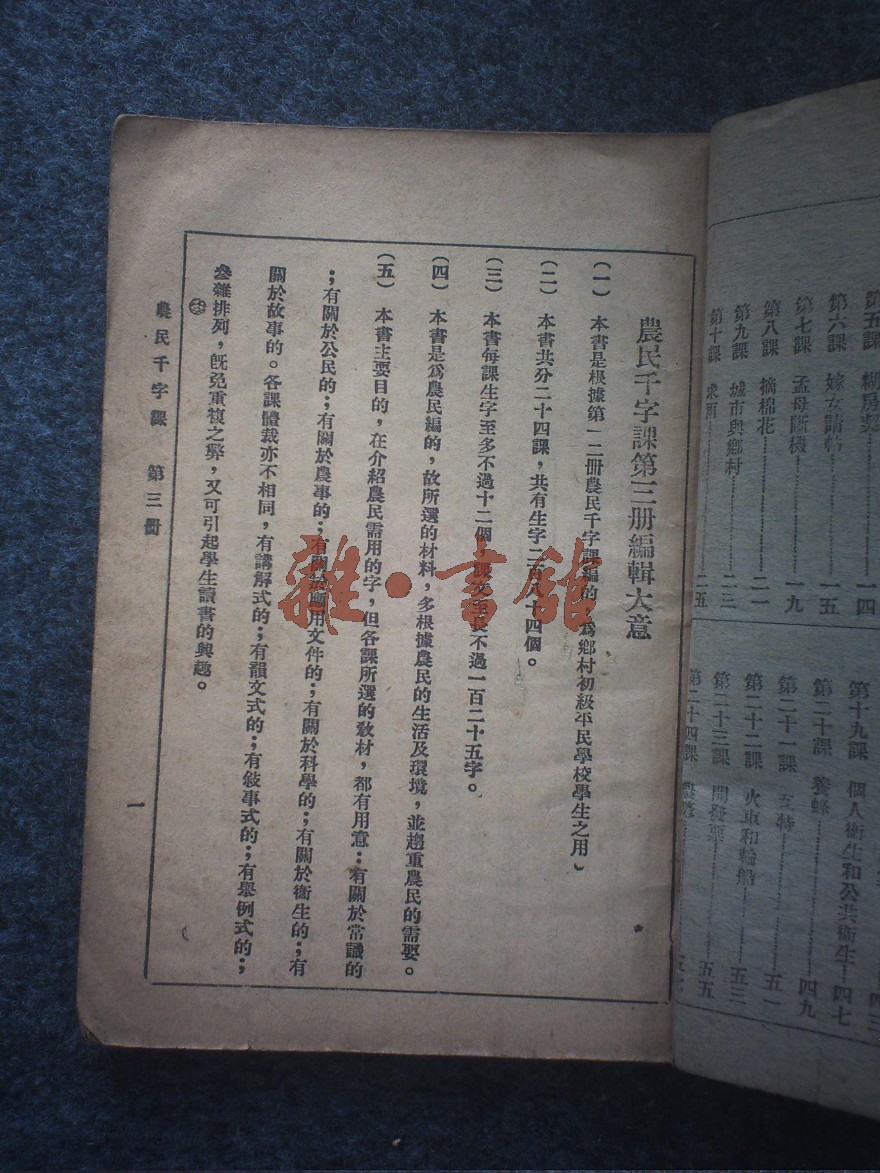 第五課 糊房契
第六課 嫁女請帖 一五
第七課 孟母斷機 一九
第八課 摘棉花 二一
第九課 城市與鄉村 二三
第十課 求雨 二五
一四
第十九課 個人衛生和公共衛生 四七
第二十課 養蜂 四九
第二十一課 五一
第二十二課 火車和輪船 五三
第二十三課 開發票 五五
第二十四課
農民千字課第三册編輯大意
(一) 本書是根據第一二册農民千字課編的 爲鄉村初級平民學校學生之用
(二) 本書共分二十四課，共有生字二百八十四個。
(三) 本書每課生字至多不過十二個，課文至長不過一百二十五字。
(四) 本書是爲農民編的，故所選的材料，多根據農民的生活及環境，並趨重農民的需要。
(五) 本書主要目的，在介紹農民需用的字，但各課所選的教材，都有用意：有關於常識的
；有關於公民的；有關於農事的；有關於應用文件的；有關於科學的；有關於衞生的；有
關於故事的。各課體裁亦不相同，有講解式的；有韻文式的；有敍事式的；有舉例式的；
參雜排列，旣免重複之弊，又可引起學生讀書的興趣。
農民千字課 第三冊
一
雜·書館